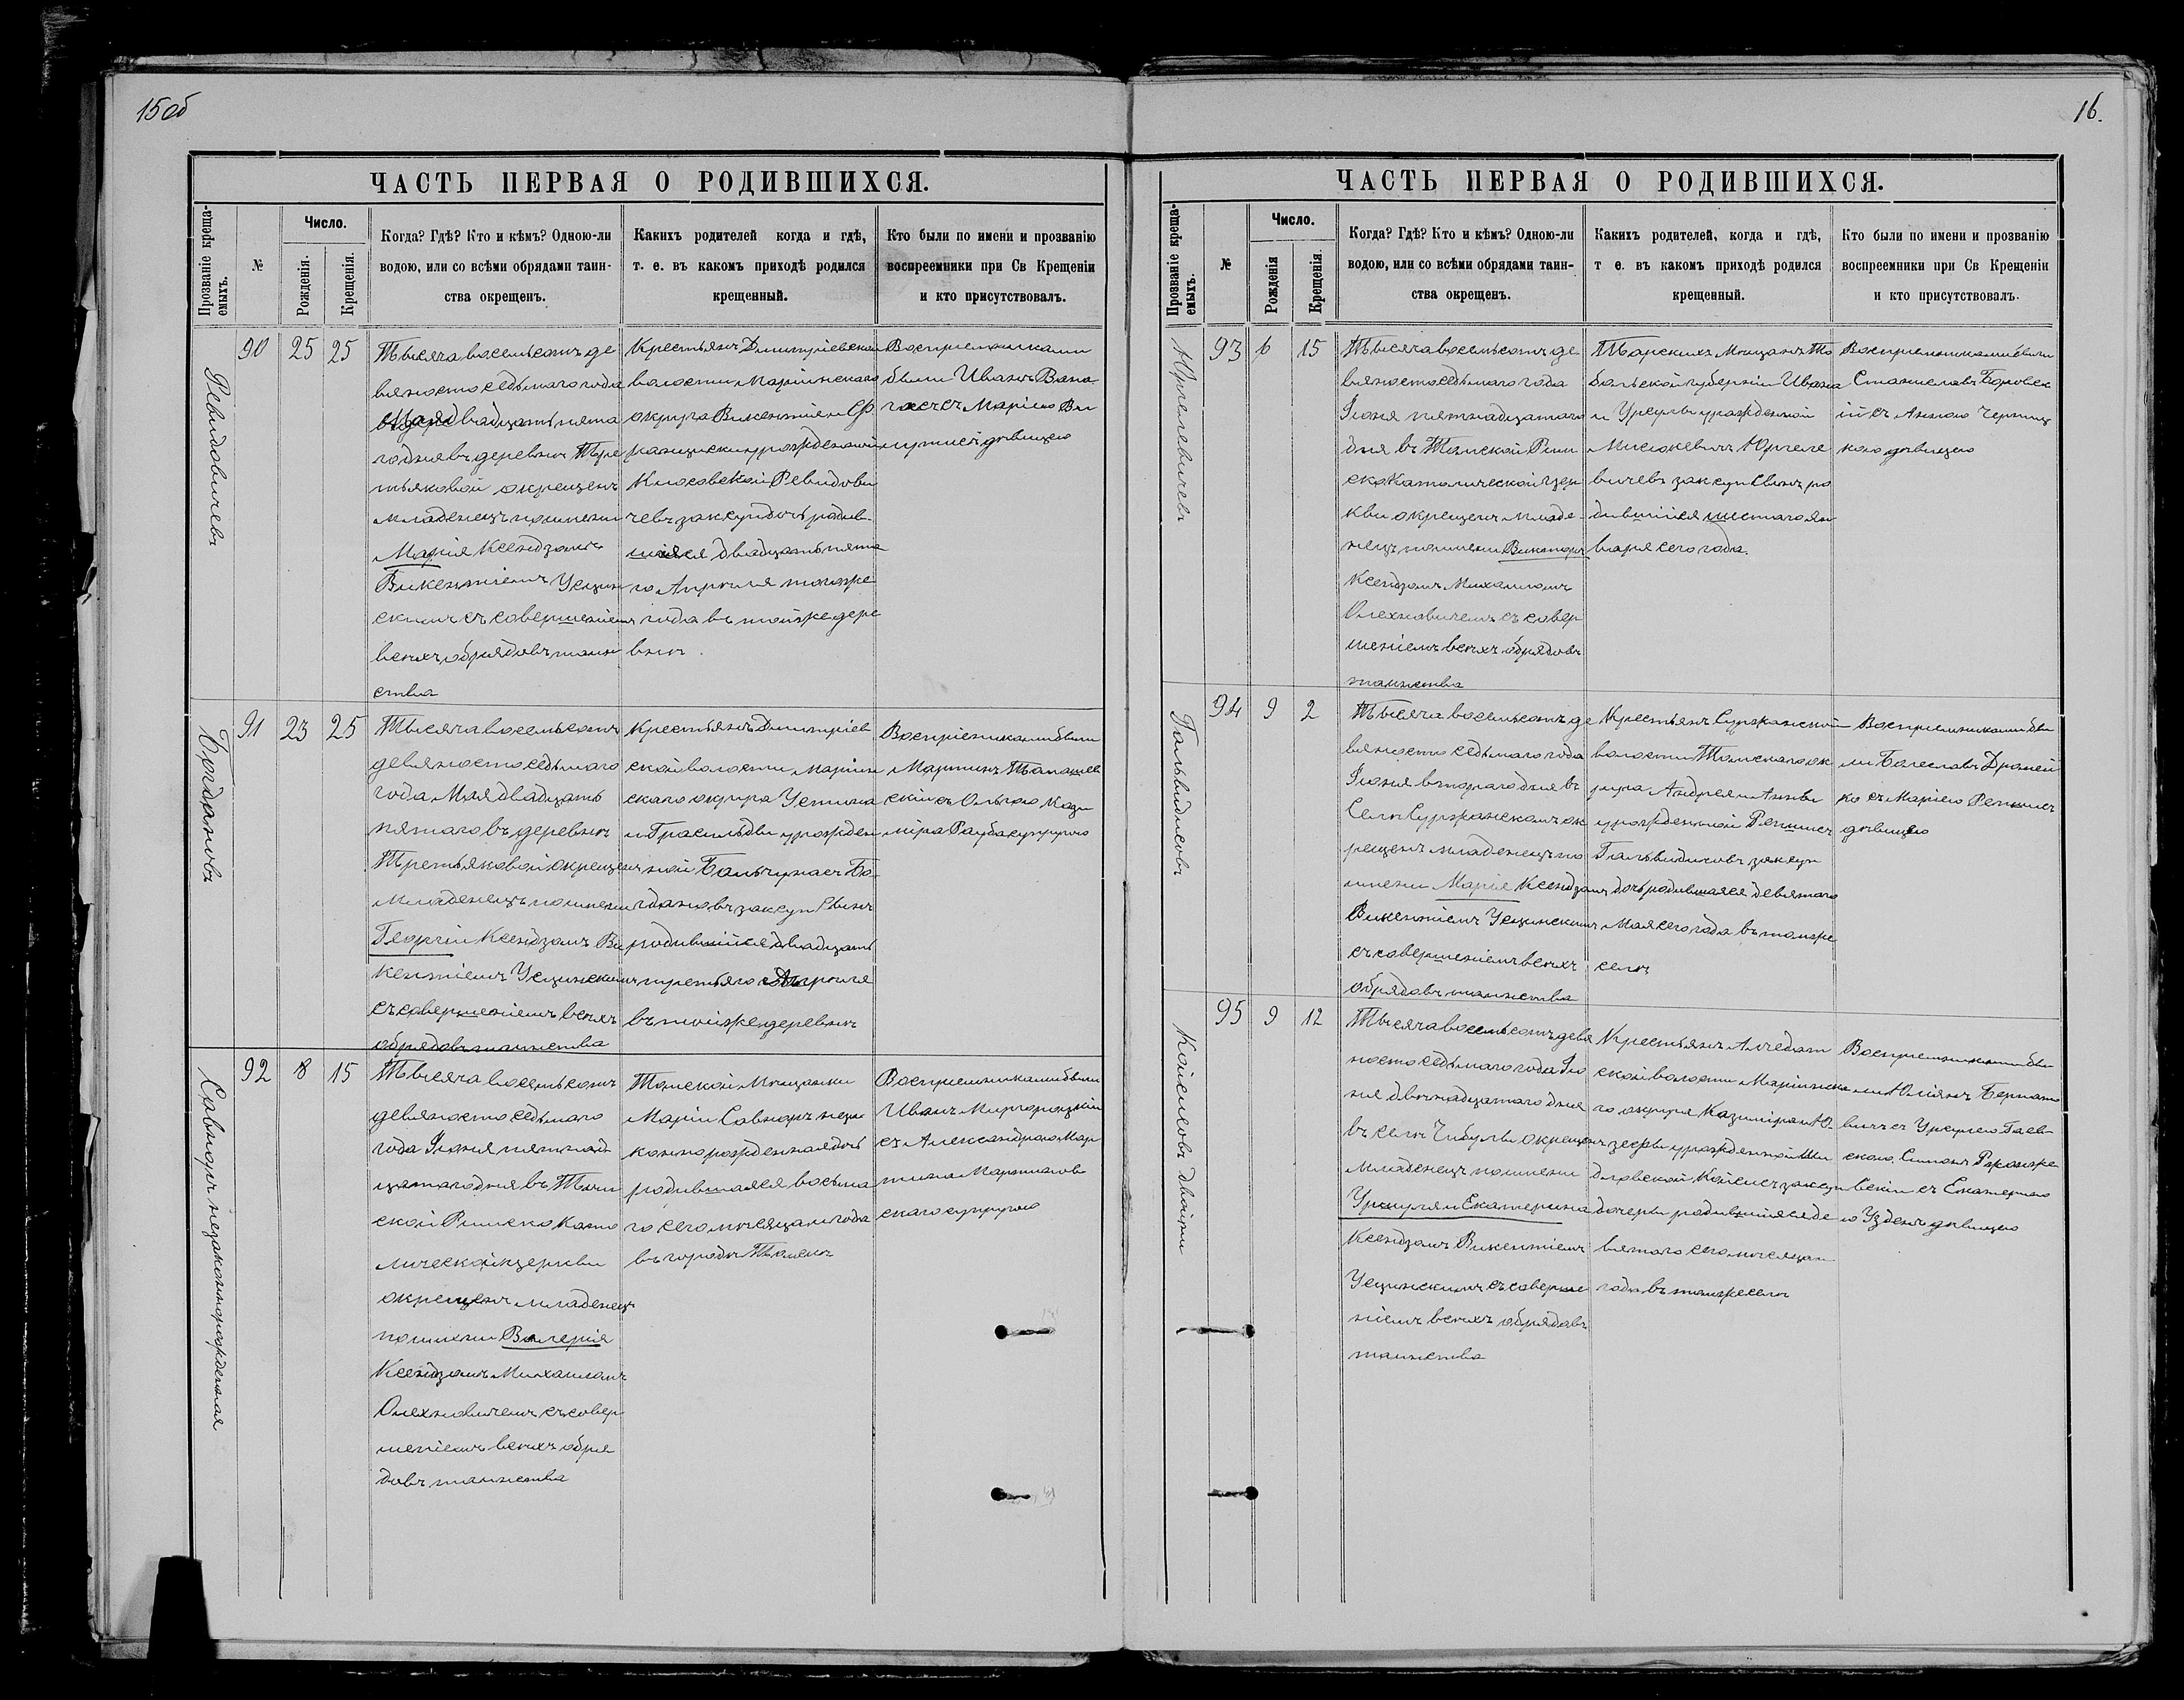 15 об
ЧАСТЬ ПЕРВАЯ О РОДИВШИХСЯ.
Прозваніе креща-
емыхъ.
№
Число.
Рожденія.
Крещенія.
Когда? Гдѣ? Кто и кѣмъ? Одною-ли
водою, или со всѣми обрядами таин-
ства окрещенъ.
Какихъ родителей когда и гдѣ,
т. е. въ какомъ приходѣ родился
крещенный.
Кто были по имени и прозванію
воспреемники при Св Крещеніи
и кто присутствовалъ.
Ревидовичевъ
90
25
25
Тысяча восемьсотъ де
вяносто седьмого года
Мая двадцать пята
го дня въ деревнѣ Тре
тьяковой окрещенъ
младенецъ по имени
Марія Ксендзомъ
Викентіемъ Усцин
скимъ съ совершеніемъ
всѣхъ обрядовъ таин
ства
Крестьянъ Дмитріевской
волости Маріинскаго
округа Викентія и Ф
ранциски урожденной
Клосовской Ревидови
чевъ зак супр дочь родив-
шаяся двадцать пята
го Апрѣля того же
года въ той же дере
внѣ.
Воспріемниками
были Иванъ
съ Маріею
дѣвицею
Богдановъ
91
23
25
Тысяча восемьсотъ
девяносто седьмого
года Мая двадцать
пятаго въ деревнѣ
Третьяковой окрещенъ
младенецъ по имени
Георгій Ксендзомъ Ви
кентіемъ Усцинскимъ
съ совершеніемъ всѣхъ
обрядовъ таинства
Крестьянъ Дмитріев
ской волости Маріин
скаго округа Устина
и урожден
ной Бо
гдановъ зак суп сынъ
родившійся двадцать
третьяго Апрѣля
въ той же деревнѣ
Воспріемниками были
Мартинъ
съ Ольгою Кази
міра супругою
Савнорь незаконнорожденная
92
8
15
Тысяча восемьсотъ
девяносто седьмого
года Іюня пятнад
цатаго дня въ Том
ской Римско Като
лической церкви
окрещенъ младенецъ
по имени Валерія
Ксендзомъ Михаиломъ
Олехновичемъ съ совер
шеніемъ всѣхъ обря
довъ таинства
Томской Мѣщанки
Маріи Савнорь неза
коннорожденная дочь
родившаяся восьма
го сего мѣсяца и года
въ городѣ Томскѣ
Воспріемниками были
Иванъ Миргородскій
съ Александрою Мар
тина
скаго супругою
16.
ЧАСТЬ ПЕРВАЯ О РОДИВШИХСЯ.
Прозваніе креща-
емыхъ.
№
Число.
Рожденія
Крещенія.
Когда? Гдѣ? Кто и кѣмъ? Одною-ли
водою, или со всѣми обрядами таин-
ства окрещенъ.
Какихъ родителей, когда и гдѣ,
т е. въ какомъ приходѣ родился
крещенный.
Кто были по имени и прозванію
воспреемники при Св Крещеніи
и кто присутствовалъ.
Юргелевичевъ
93
6
15
Тысяча восемьсотъ де
вяносто седьмого года
Іюня пятнадцатаго
дня въ Томской Рим
ско Католической цер
кви окрещенъ младе-
нецъ по имени Викторъ
Ксендзомъ Михаиломъ
Олехновичемъ съ совер
шеніемъ всѣхъ обрядовъ
таинства
Тарскихъ Мѣщанъ То
больской губерніи Ивана
и Урсулы урожденной
Мисюкевичъ Юргеле
вичевъ зак суп сынъ ро
дившійся шестаго ян
варя сего года.
Воспріемниками были
Станиславъ Боровск
ій съ Анною Черниц
кою дѣвицею
Гольвидисовъ
94
9
2
Тысяча восемьсотъ де
вяносто седьмого года
Іюня второго дня въ
Селѣ Суржанскомъ ок
рещенъ младенецъ по
имени Марія Ксендзомъ
Викентіемъ Усцинскимъ
съ совершеніемъ всѣхъ
обрядовъ таинства
Крестьянъ Суржанской
волости Томскаго ок
руга Андрея и Анны
урожденной
зак суп
дочь родившаяся девятаго
Мая сего года въ томъ же
селѣ
Воспріемниками бы
ли Болеславъ
съ Маріею
дѣвицею
Койсисовъ двойни
95
9
12
Тысяча восемьсотъ девя
носто седьмого года Ію
ня двѣнадцатаго дня
въ селѣ Чибулы окрещенъ
младенецъ по имени
Урсуля и Екатерина
Ксендзомъ Викентіемъ
Усцинскимъ съ соверше
ніемъ всѣхъ обрядовъ
таинства
Крестьянъ Алчедат
ской волости Маріинска
го округа Казиміра и Ю
зефы урожденной Ши
дловской Койсисъ зак суп
дочери родившіяся де
вятаго сего мѣсяца и
года въ томъ же селѣ
Воспріемниками бы
ли Юліанъ Бернато
вичъ съ Урсулею Гаев-
скою. Симонъ
съ Екатериною
дѣвицею